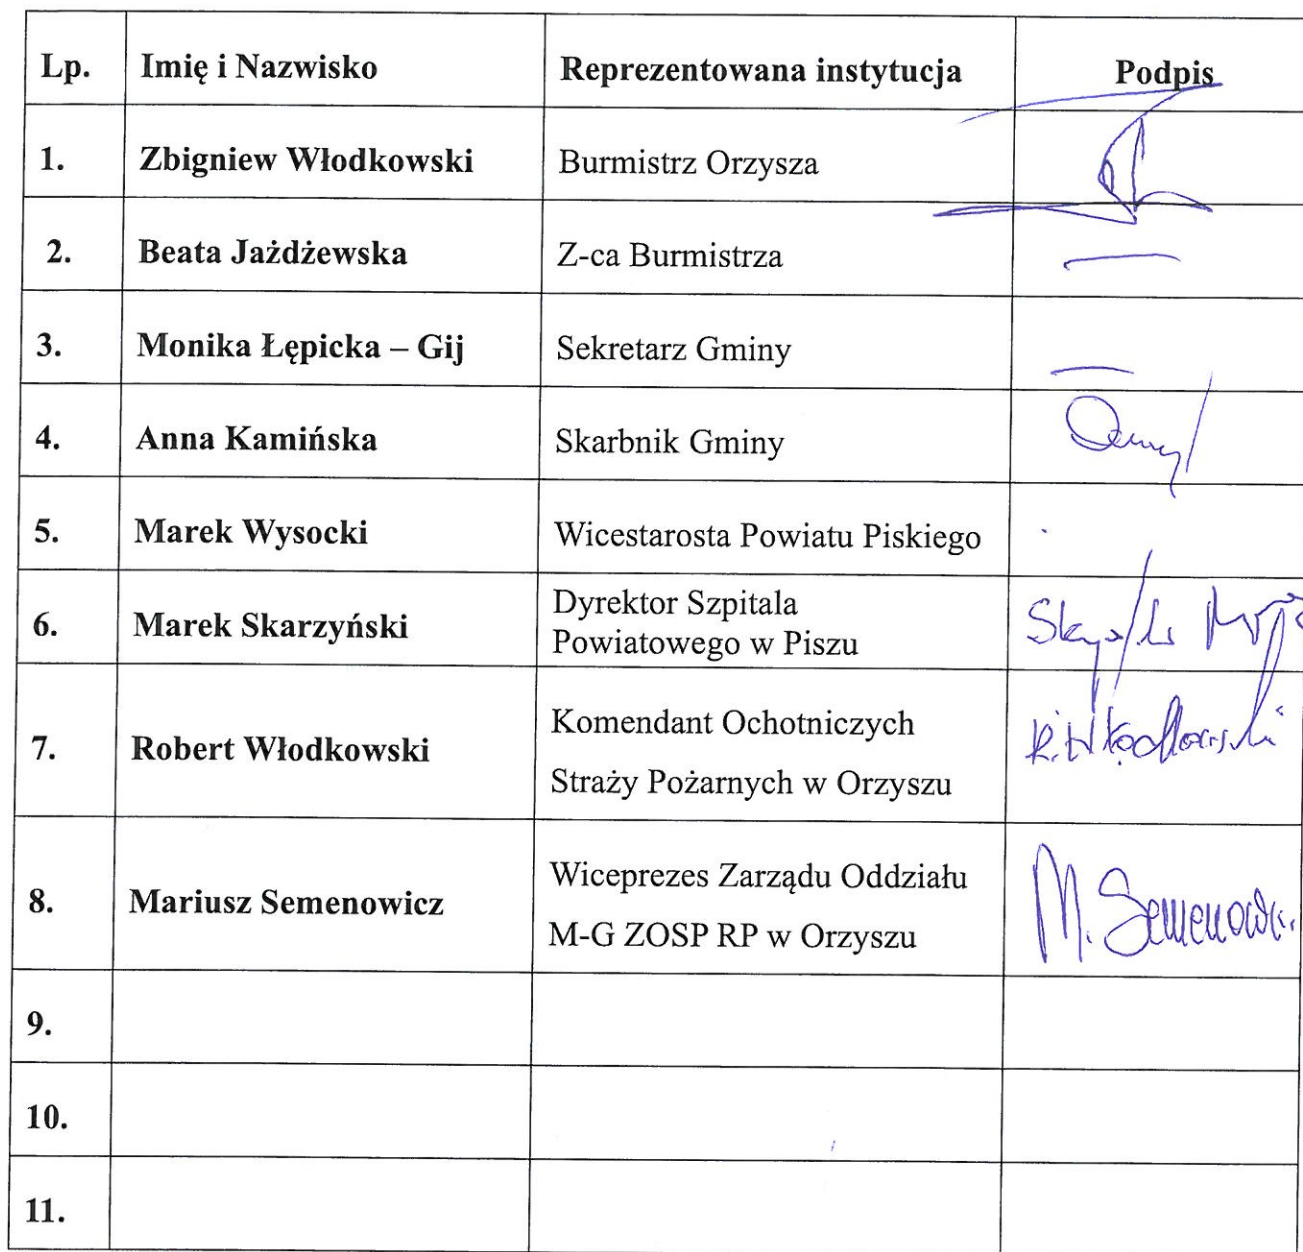 Lp. Imię i Nazwisko Reprezentowana instytucja Podpis
1. Zbigniew Włodkowski Burmistrz Orzysza
2. Beata Jażdżewska Z-ca Burmistrza
3. Monika Łępicka – Gij Sekretarz Gminy
4. Anna Kamińska Skarbnik Gminy
5. Marek Wysocki Wicestarosta Powiatu Piskiego
6. Marek Skarzyński Dyrektor Szpitala
Powiatowego w Piszu
7. Robert Włodkowski Komendant Ochotniczych
Straży Pożarnych w Orzyszu
R. Włodkowski
8. Mariusz Semenowicz Wiceprezes Zarządu Oddziału
M-G ZOSP RP w Orzyszu
M. Semenowicz
9.
10.
11.